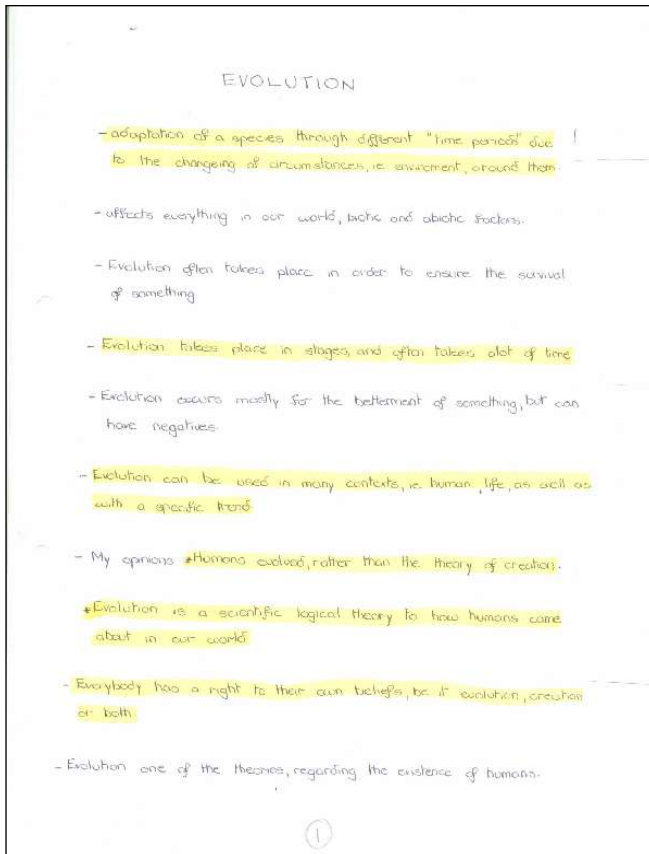 EVOLUTION
- adaptation of a species through different "time periods" due
to the changeing of circumstances, ie enviroment, around them.
- affects everything in our world, biotic and abiotic factors.
- Evolution often takes place in order to ensure the survival
of something
- Evolution takes place in stages, and often takes alot of time
- Evolution occurs mostly for the betterment of something, but can
have negatives.
- Evolution can be used in many contexts, ie. human, life, as well as
with a specific trend
- My opinions *Humans evolved, rather than the theory of creation.
*Evolution is a scientific logical theory to how humans came
about in our world
- Everybody has a right to their own beliefs, be it evolution, creation
or both
- Evolution one of the theories, regarding the existence of humans.
1